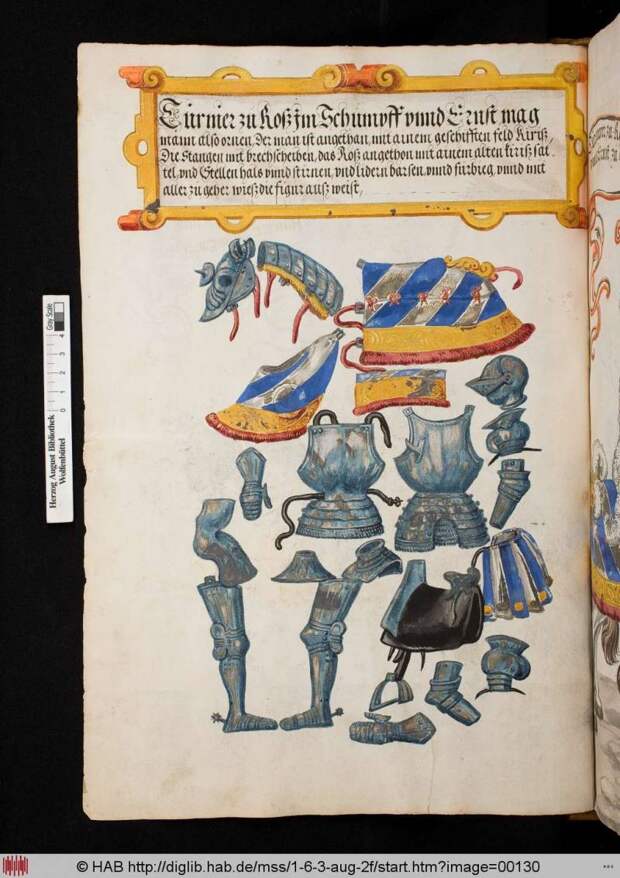 Turnier zu Roß Jm Schumpff vnnd Ernst mag
mann also ornen, Der man ist angethan, mit ainem geschifften feld Kiriß,
Die Stangen mit brechscheiben, das Roß angethon mit ainem alten kiriß sat
tel, vnd Stellen hals vnnd stirnen, vnd lidern barsen, vnnd fürbieg, vnnd mit
aller zu geher wieß die figur auß weist,
Gray Scale
0 1 2 3 4
Herzog August Bibliothek
Wolfenbüttel
© HAB http://diglib.hab.de/mss/1-6-3-aug-2f/start.htm?image=00130